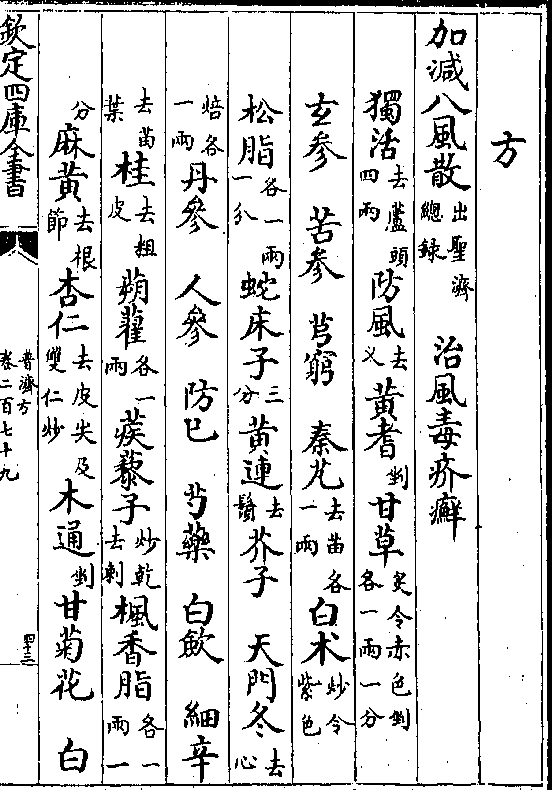 方
加減八風散出聖濟總錄 治風毒疥癬
獨活去蘆頭四兩 防風去义 黄耆剉 甘草炙令赤色剉各一兩一分
玄參 苦參 芎藭 秦艽去苗各一兩 白术炒令紫色
松脂各一兩一分 蛇床子三分 黄連去鬚 芥子 天門冬去心
焙各一兩 丹參 人參 防巳 芍藥 白歛 細辛
去苗葉 桂去粗皮 蒴藋各一兩 蒺藜子炒乾去刺 楓香脂各一兩一
分 麻黄去根節 杏仁去皮尖及雙仁炒 木通剉 甘菊花 白
欽定四庫全書 普濟方卷二百七十九 四十三